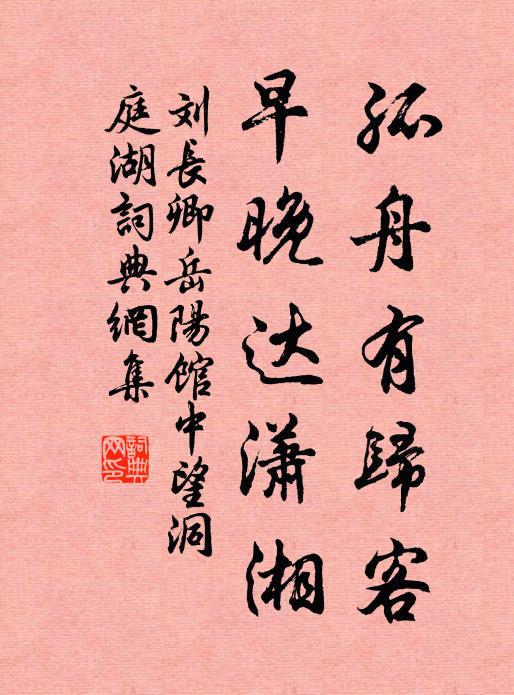 孤舟有歸客
早晚达潇湘
刘長卿岳陽館中望洞
庭湖詞典網集
詞典网印